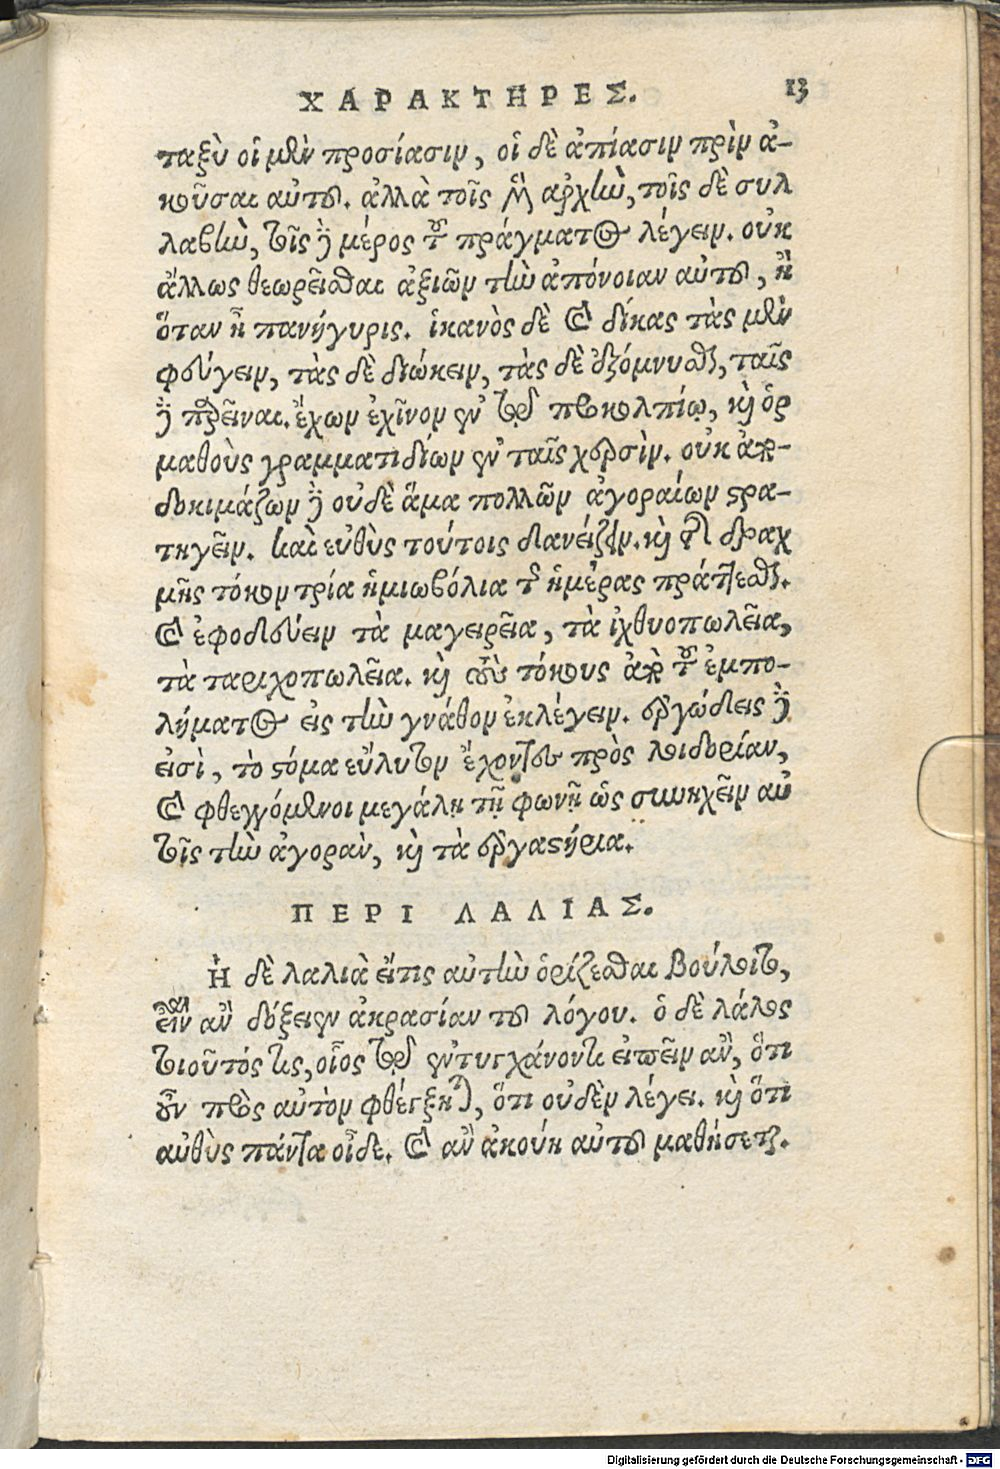 ΧΑΡΑΚΤΗΡΕΣ. 13
ταξὺ οἱ μὲν προσίασιν, οἱ δὲ ἀπίασιν πρὶν ἀ-
κοῦσαι αὐτοῦ. ἀλλὰ τοῖς μὲν ἀρχὴν, τοῖς δὲ συλ
λαβὴν, τοῖς δὲ μέρος τοῦ πράγματος λέγειν. οὐκ
ἄλλως θεωρεῖσθαι ἀξιῶν τὴν ἀπόνοιαν αὐτοῦ, ἢ
ὅταν ᾖ πανήγυρις. ἱκανὸς δὲ καὶ δίκας τὰς μὲν
φεύγειν, τὰς δὲ διώκειν, τὰς δὲ ἐξόμνυσθαι, ταῖς
δὲ παρεῖναι. ἔχων ἐχῖνον ἐν τῷ προκολπίῳ, καὶ ὁρ
μαθοὺς γραμματιδίων ἐν ταῖς χερσὶν. οὐκ ἀπο-
δοκιμάζων δὲ οὐδὲ ἅμα πολλῶν ἀγοραίων στρα-
τηγεῖν. καὶ εὐθὺς τούτοις δανείζειν. καὶ τῆς δραχ
μῆς τόκον τρία ἡμιωβόλια τῆς ἡμέρας πράττεσθαι.
καὶ ἐφοδεύειν τὰ μαγειρεῖα, τὰ ἰχθυοπωλεῖα,
τὰ ταριχοπωλεῖα. καὶ τοὺς τόκους ἀπὸ τοῦ ἐμπο-
λήματος εἰς τὴν γνάθον ἐκλέγειν. ἐργώδεις δὲ
εἰσὶ, τὸ στόμα εὔλυτον ἔχοντες πρὸς λοιδορίαν,
καὶ φθεγγόμενοι μεγάλῃ τῇ φωνῇ ὡς συνηχεῖν αὐ
τοῖς τὴν ἀγορὰν, καὶ τὰ ἐργαστήρια.
ΠΕΡΙ ΛΑΛΙΑΣ.
Ἡ δὲ λαλιὰ εἴτις αὐτὴν ὁρίζεσθαι βούλοιτο,
εἶναι ἂν δόξειεν ἀκρασίαν τοῦ λόγου. ὁ δὲ λάλος
τοιοῦτός τις, οἷος τῷ ἐντυγχάνοντι εἰπεῖν ἂν, ὅτι
οὖν πρὸς αὐτὸν φθέγξηται, ὅτι οὐδὲν λέγει. καὶ ὅτι
αὐθὺς πάντα οἶδε. καὶ ἂν ἀκούῃ αὐτοῦ μαθήσεται.
Digitalisierung gefördert durch die Deutsche Forschungsgemeinschaft - DFG